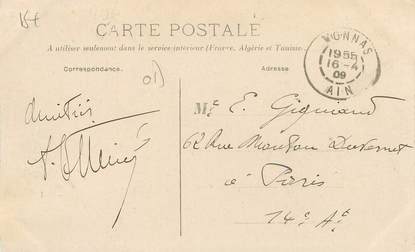 CARTE POSTALE
A utiliser seulement dans le service intérieur (France, Algérie et Tunisie.)
Correspondance.
Adresse
VONNAS
1955
16-4
09
AIN
01)
Amitiés
Mr E. Gignand
62 Rue Mouton Duvernet
à Paris
14e At